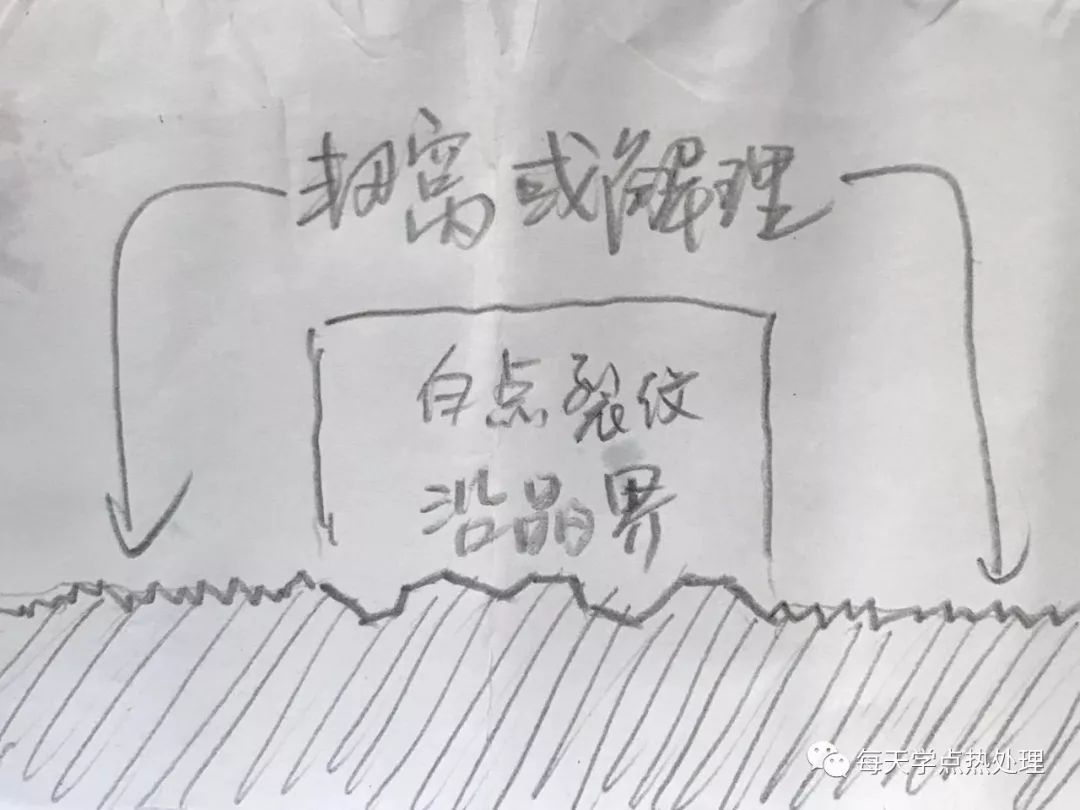 韧窝或解理
白点裂纹
沿晶界
每天学点热处理